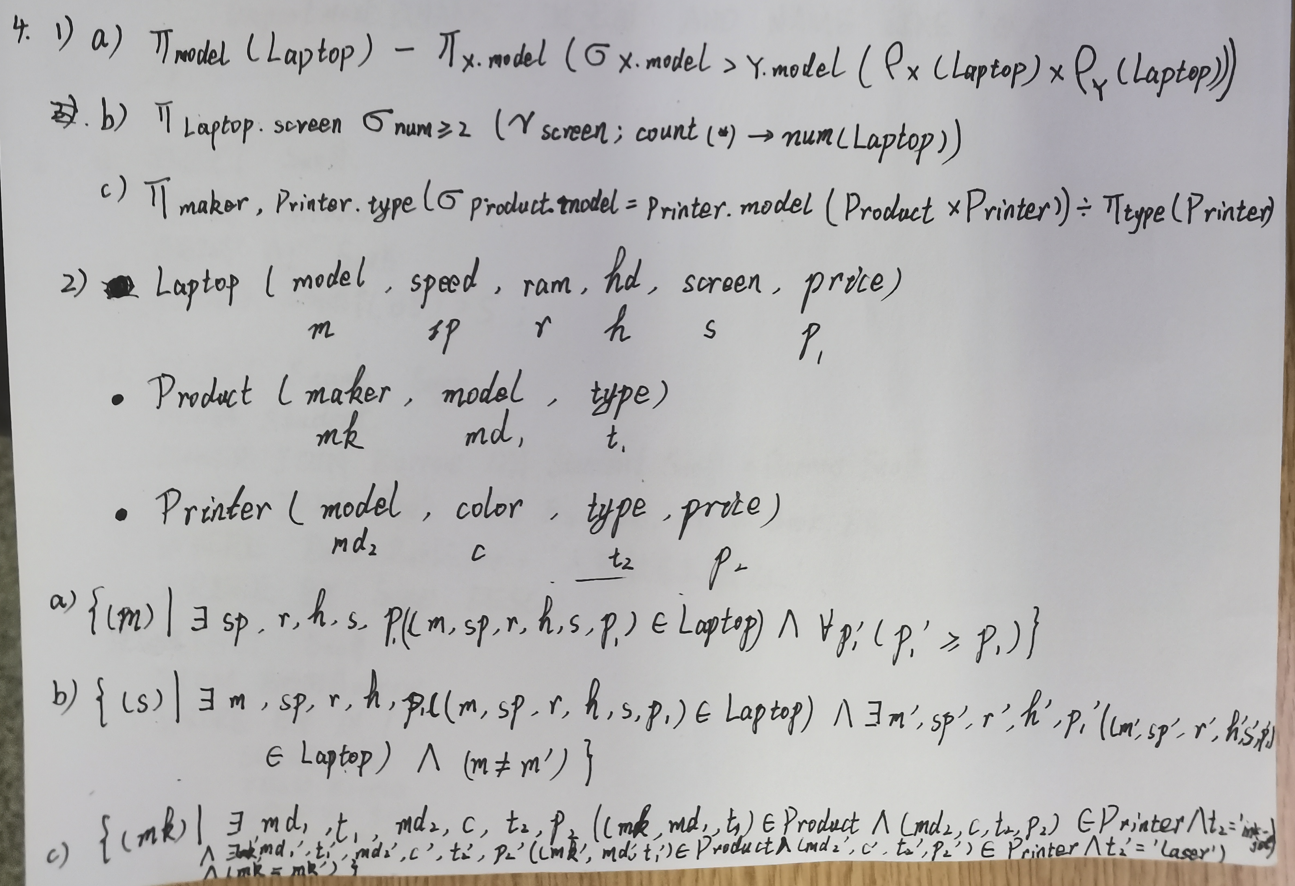 4. 1) a) π model (Laptop) − π X.model (σ X.model > Y.model (ρX (Laptop) × ρY (Laptop)))
b) π Laptop.screen σ num≥2 (γ screen; count(*) → num(Laptop))
c) π maker, Printer.type (σ product.model = printer.model (Product × Printer)) ÷ π type (Printer)
2) Laptop ( model , speed , ram , hd , screen , price)
m sp r h s p₁
• Product ( maker , model , type)
mk md₁ t₁
• Printer ( model , color , type , price)
md₂ c t₂ p₂
a) {(m) | ∃ sp, r, h, s, p₁((m, sp, r, h, s, p₁) ∈ Laptop) ∧ ∀p₁' (p₁' ≥ p₁)}
b) {(s) | ∃ m, sp, r, h, p₁((m, sp, r, h, s, p₁) ∈ Laptop) ∧ ∃m', sp', r', h', p₁'((m', sp', r', h', s', p₁')
∈ Laptop) ∧ (m ≠ m') }
c) {(mk) | ∃ md₁, t₁, md₂, c, t₂, p₂ ((mk, md₁, t₁) ∈ Product ∧ (md₂, c, t₂, p₂) ∈ Printer ∧ t₂ =
∧ md₁', t₁', md₂', c', t₂', p₂' ((mk', md₁', t₁') ∈ Product ∧ (md₂', c', t₂', p₂') ∈ Printer ∧ t₂' = 'laser')
∧ (mk = mk') }